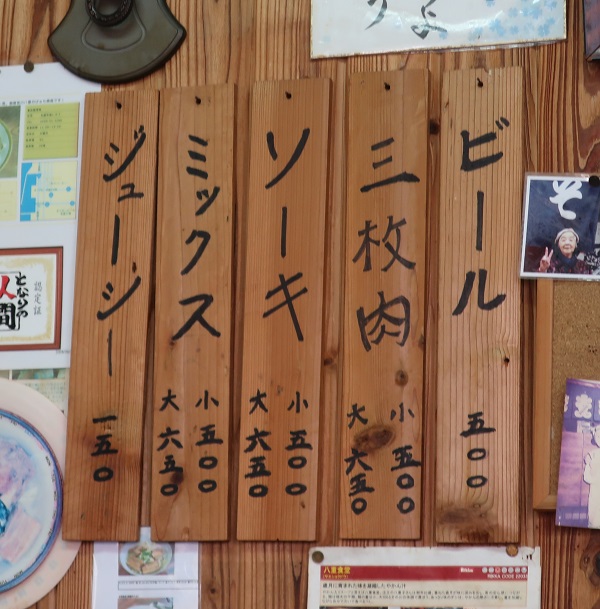 ビール 五〇〇
三枚肉
小 五〇〇
大 六五〇
ソーキ
小 五〇〇
大 六五〇
ミックス
小 五〇〇
大 六五〇
ジューシー 一五〇
そ
認定証
となりの
人間
八重食堂